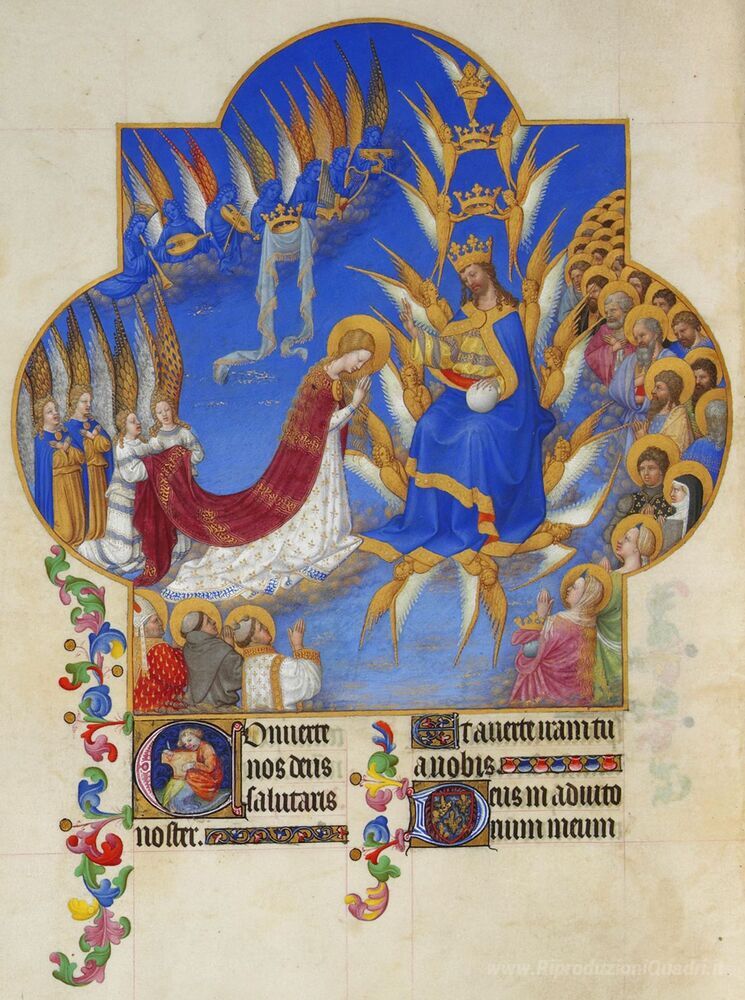 Converte
nos deus
salutaris
noster.
Et averte iram tu
a nobis.
Deus in adiuto
rium meum
www.RiproduzioniQuadri.it